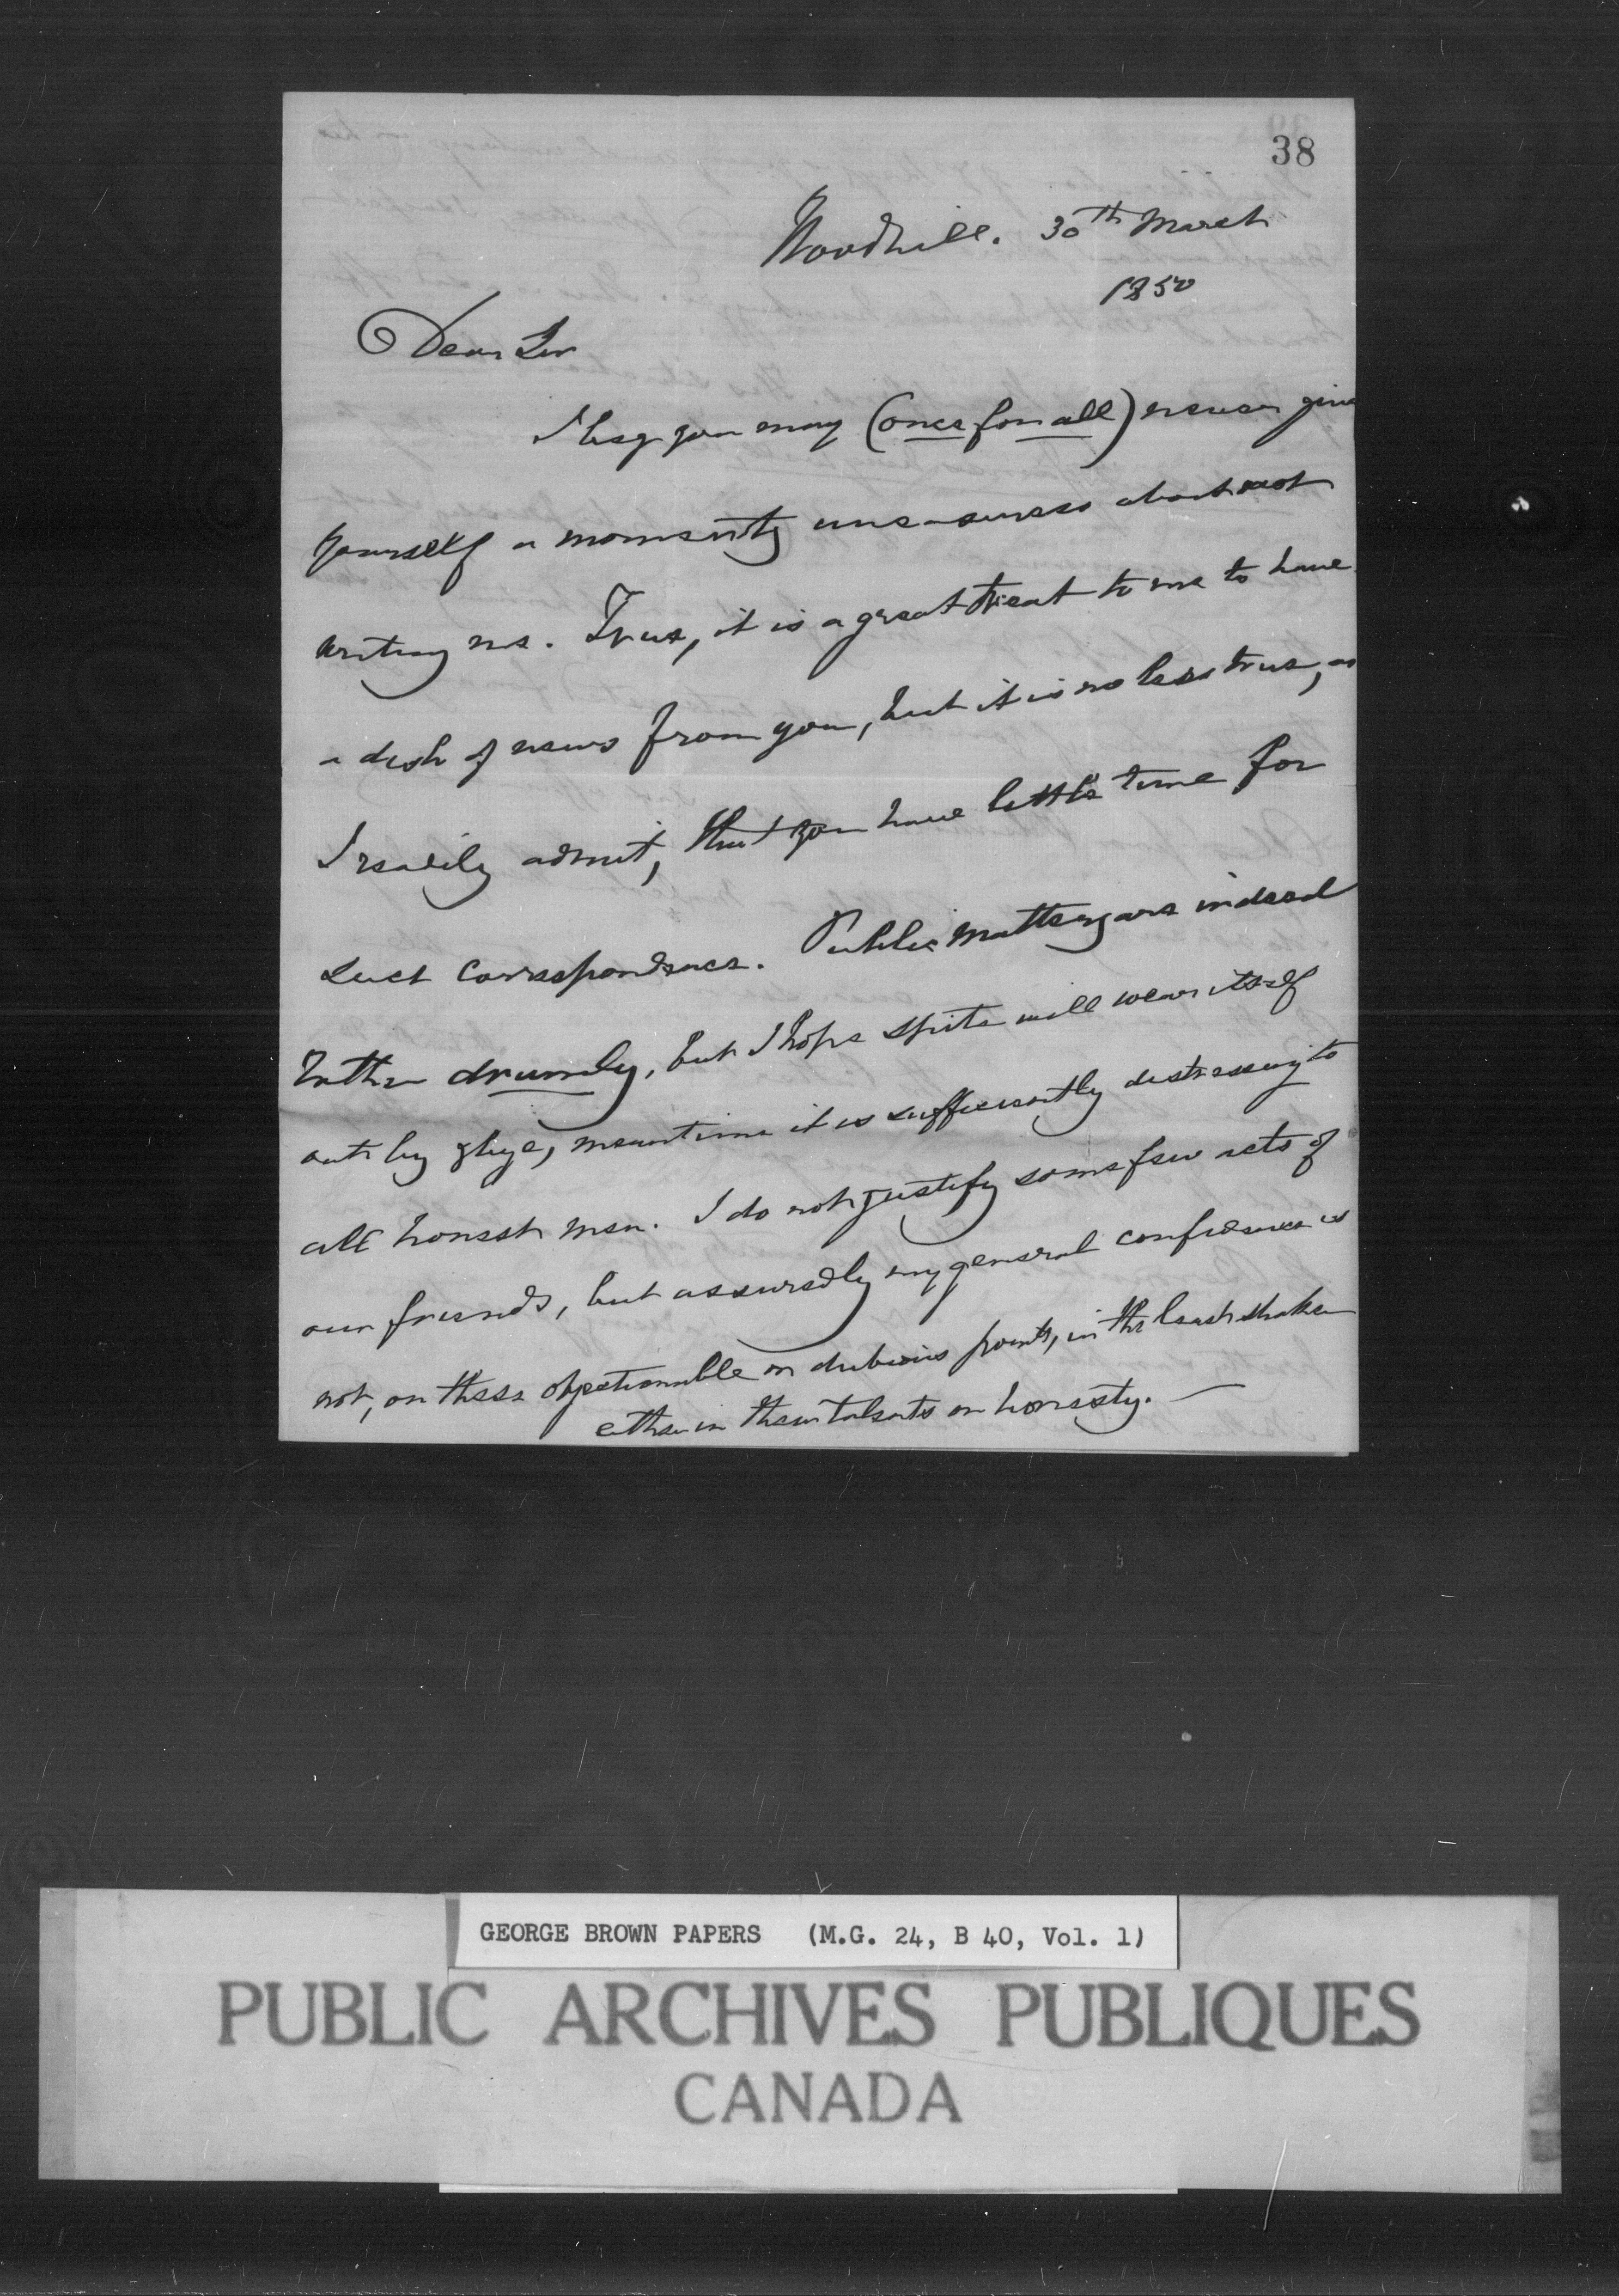 38
Woodhill. 30th March
1850
Dear Sir
I beg you may (once for all) never give
yourself a moments uneasiness about not
writing me. True, it is a great treat to me to have
a dish of news from you, but it is no less true, as
I readily admit, that you have little time for
such correspondence. Public matters are indeed
rather drumly, but I hope spite will wear itself
out by & bye, meantime it is sufficiently distressing to
all honest men. I do not justify some few acts of
our friends, but assuredly my general confidence is
not, on these objectionable or dubious points, in the least shaken
either in their talents or honesty. —
GEORGE BROWN PAPERS (M.G. 24, B 40, Vol. 1)
PUBLIC ARCHIVES PUBLIQUES
CANADA